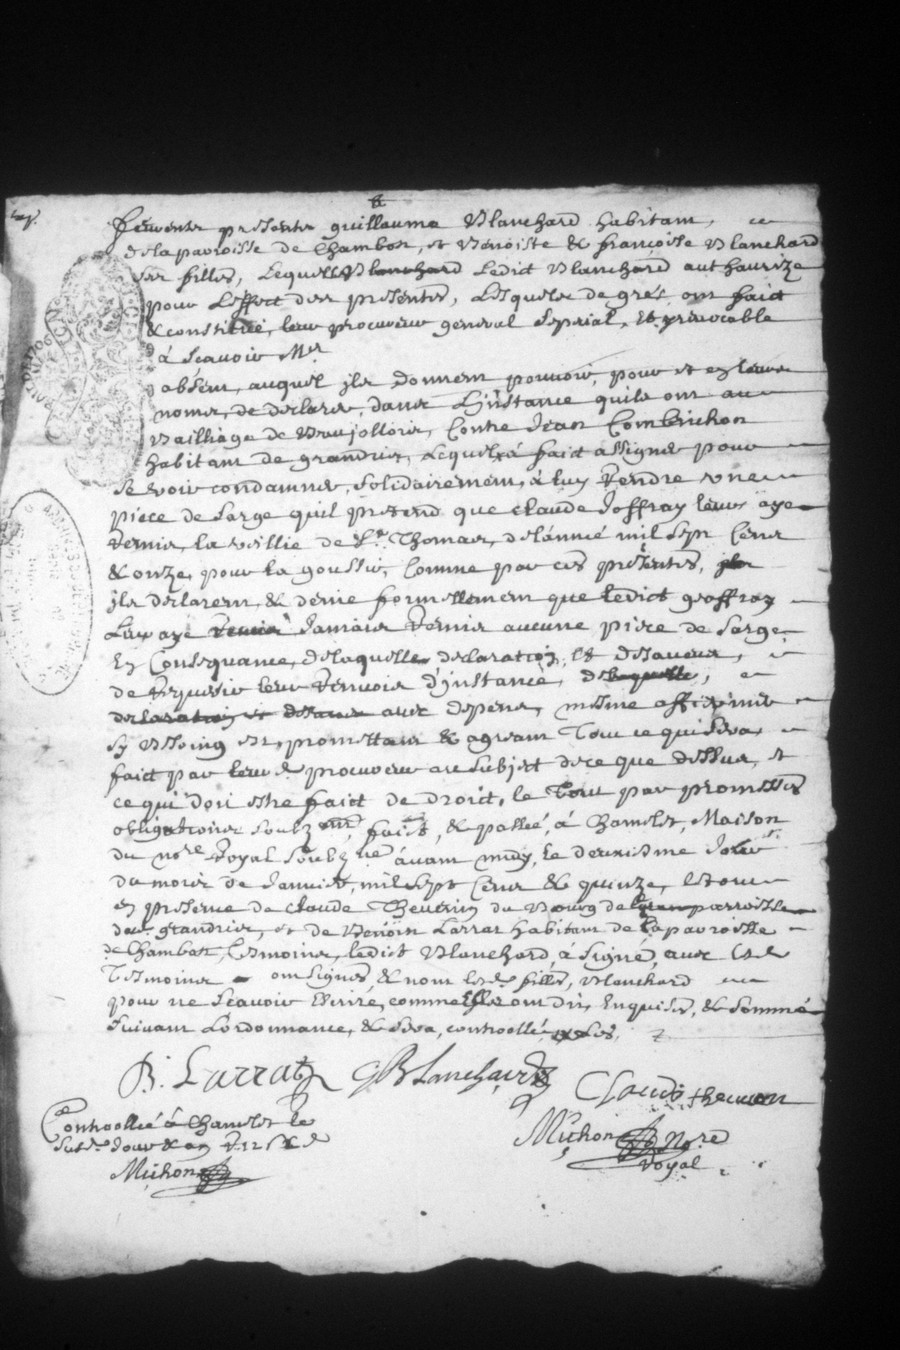 furent presents guillaume Blanchard habitant, en
de la parroisse de Chambost, et Benoiste & françoise Blanchard
ses filles, Lequell Blanchard Ledict Blanchard authaurize
pour L'effect des presentes, Lesquels de grés, ont faict
& constitué, leur procureur general sepsial, & yrevocable
à scavoir Mer
absent, auquel ils donnent pouvoir, pour et en leurs
noms, de desclarer, dans L'instance quils ont au
Bailliage de Beaujollois, Contre Jean Combrichon
habitant de grandris, Lequel à faict assigner pour
se voir condamner, solidairement, à luy Rendre une
piece de sarge quil pretend que claude Joffray leurs aye
Remis, la veillie de St. Thomas, de lánnée mil sept Cens
& onze, pour la , Comme par ces présentes, ils
ils desclarent, & denie formellement que ledict geoffray
Leur aye Remis Jamais Remis aucune piece de sarge
En Consequance, de laquelle desclaration, & desaveux,
de Requerir leur Renvoie d'instance, de laquelle,
desclaration et desaveu avec depens, mesme affirmer
sy Besoing est, promettans & agreant Tout ce qui sera,
faict par leurd procureur au subject de ce que dessus, et
ce qui doit estre faict de droict, le tout par promesses
obligations soubz , faict, & passé, à Chamelet, Maison
du nore Royal soubz.ne àvant midy, Le deuxiesme Jour
du mois de Janvier, mil sept Cens & quinze, Estant
en presence de claude Theverin du Bourg de parroisse
de grandris, et de Benoist Larrat habitant de la parroisse
de Chambost, Tesmoins, ledict Blanchard, à signé, avec Lesd
Tesmoins ont signés, & nom lesd. filles, Blanchard
pour ne scavoir Escrire, comme Elles ont dit, Enquises, & sommé
suivant Lordonnance, & sera, controollée, es Les,
B. Larrat G Blanchard
Claude thevenon
Controollé à Chamelet le
susd. Jour & an
Michon
Michon Nore
Royal